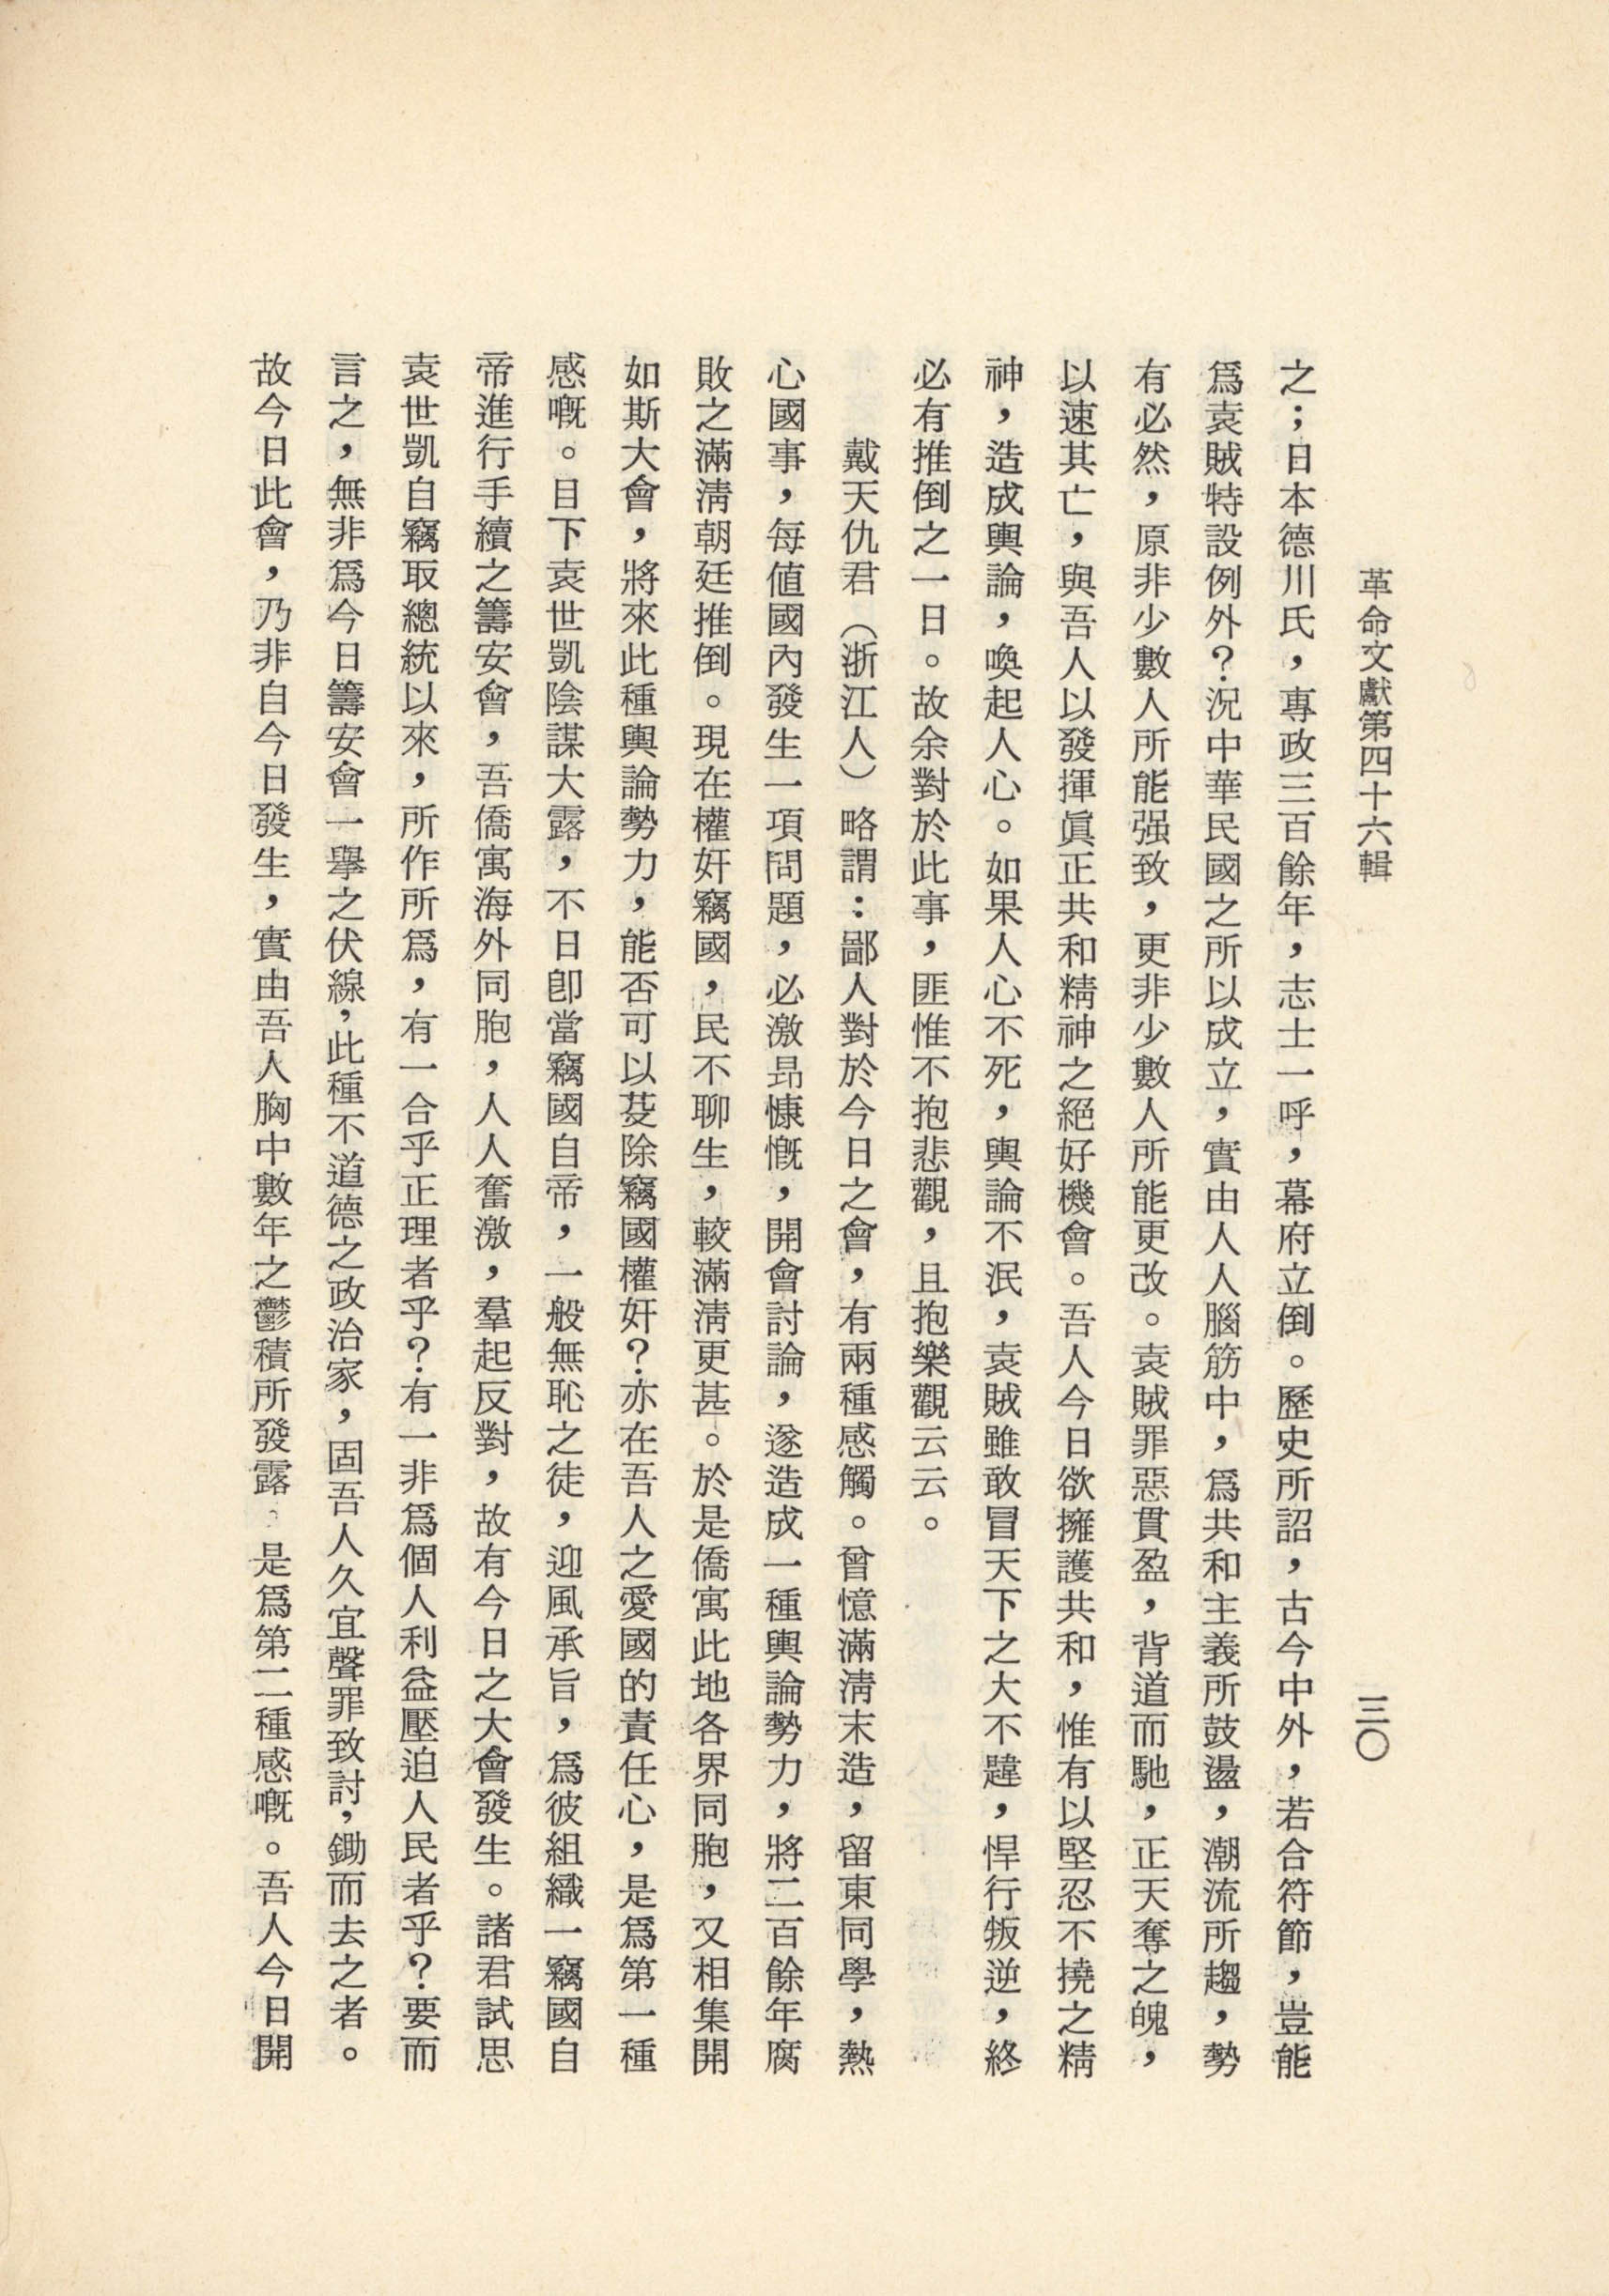 革命文獻第四十六輯
三〇
之；日本德川氏，專政三百餘年，志士一呼，幕府立倒。歷史所詔，古今中外，若合符節，豈能
爲袁賊特設例外？況中華民國之所以成立，實由人人腦筋中，爲共和主義所鼓盪，潮流所趨，勢
有必然，原非少數人所能强致，更非少數人所能更改。袁賊罪惡貫盈，背道而馳，正天奪之魄，
以速其亡，與吾人以發揮眞正共和精神之絕好機會。吾人今日欲擁護共和，惟有以堅忍不撓之精
神，造成輿論，喚起人心。如果人心不死，輿論不泯，袁賊雖敢冒天下之大不韙，悍行叛逆，終
必有推倒之一日。故余對於此事，匪惟不抱悲觀，且抱樂觀云云。
戴天仇君（浙江人）略謂：鄙人對於今日之會，有兩種感觸。曾憶滿淸末造，留東同學，熱
心國事，每値國內發生一項問題，必激昂慷慨，開會討論，遂造成一種輿論勢力，將二百餘年腐
敗之滿淸朝廷推倒。現在權奸竊國，民不聊生，較滿淸更甚。於是僑寓此地各界同胞，又相集開
如斯大會，將來此種輿論勢力，能否可以芟除竊國權奸？亦在吾人之愛國的責任心，是爲第一種
感嘅。目下袁世凱陰謀大露，不日卽當竊國自帝，一般無恥之徒，迎風承旨，爲彼組織一竊國自
帝進行手續之籌安會，吾僑寓海外同胞，人人奮激，羣起反對，故有今日之大會發生。諸君試思
袁世凱自竊取總統以來，所作所爲，有一合乎正理者乎？有一非爲個人利益壓迫人民者乎？要而
言之，無非爲今日籌安會一擧之伏線，此種不道德之政治家，固吾人久宜聲罪致討，鋤而去之者。
故今日此會，乃非自今日發生，實由吾人胸中數年之鬱積所發露。是爲第二種感嘅。吾人今日開